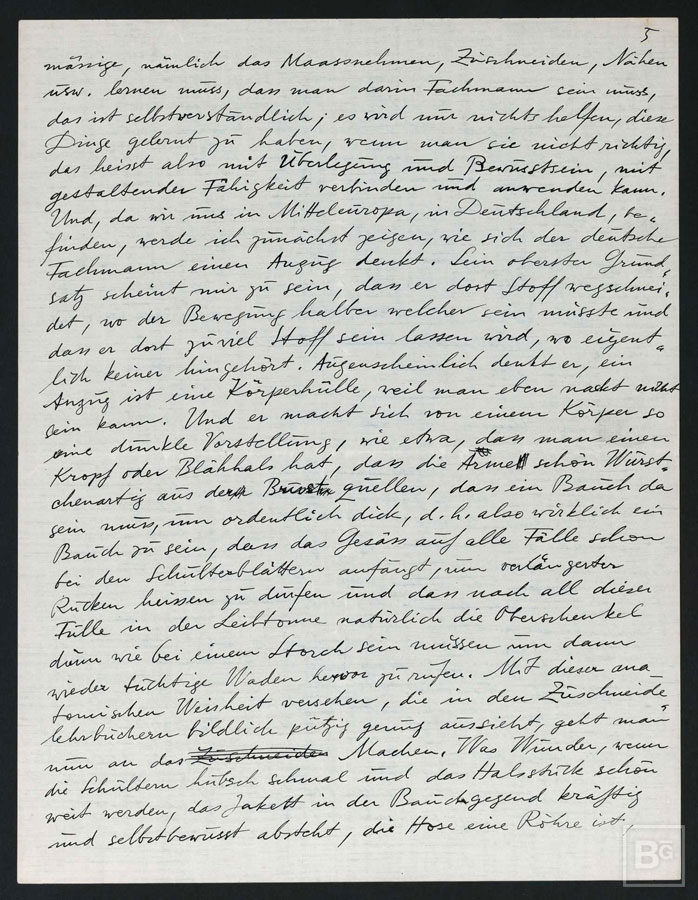 5
mässige, nämlich das Maassnehmen, Zuschneiden, Nähen
usw. lernen muss, dass man darin Fachmann sein muss,
das ist selbstverständlich; es wird nur nichts helfen, diese
Dinge gelernt zu haben, wenn man sie nicht richtig,
das heisst also mit Überlegung und Bewusstsein, mit
gestaltender Fähigkeit verbinden und anwenden kann.
Und, da wir uns in Mitteleuropa, in Deutschland, be-
finden, werde ich zunächst zeigen, wie sich der deutsche
Fachmann einen Anzug denkt. Sein oberster Grund-
satz scheint mir zu sein, dass er dort Stoff wegschnei-
det, wo der Bewegung halber welcher sein müsste und
dass er dort zuviel Stoff sein lassen wird, wo eigent-
lich keiner hingehört. Augenscheinlich denkt er, ein
Anzug ist eine Körperhülle, weil man eben nackt nicht
sein kann. Und er macht sich von einem Körper so
eine dunkle Vorstellung, wie etwa, dass man einen
Kropf oder Blähhals hat, dass die Arme schön Wurst-
chenartig aus der Brust quellen, dass ein Bauch da
sein muss, um ordentlich dick, d. h. also wirklich ein
Bauch zu sein, dass das Gesäss auf alle Fälle schon
bei den Schulterblättern anfängt, um verlängerter
Rücken heissen zu dürfen und dass nach all dieser
Fülle in der Leibtonne natürlich die Oberschenkel
dünn wie bei einem Storch sein müssen um dann
wieder tüchtige Waden hervor zu rufen. Mit dieser ana-
tomischen Weisheit versehen, die in den Zuschneide-
lehrbüchern bildlich putzig genug aussieht, geht man
nun an das Zuschneiden Machen. Was Wunder, wenn
die Schultern hübsch schmal und das Halsstück schön
weit werden, das Jakett in der Bauchgegend kräftig
und selbstbewusst absteht, die Hose eine Röhre ist,
BG